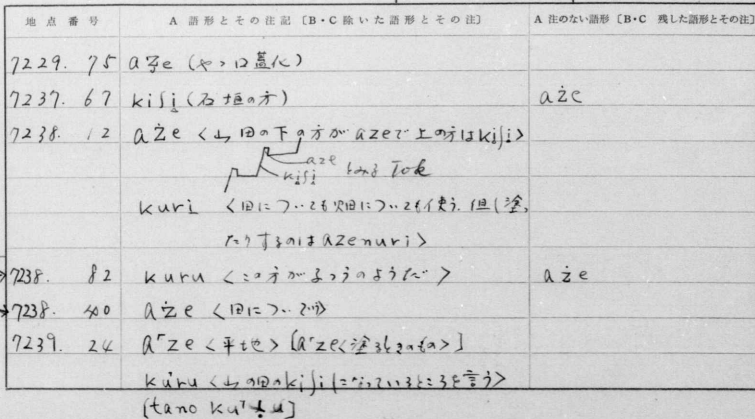 地点番号 A 語形とその注記〔B・C 除いた語形とその注〕 A 注のない語形〔B・C 残した語形とその注〕
7229. 75 aʒe (やゝ口蓋化)
7237. 67 kiʃi̤ (石垣の方) aże
7238. 12 aże <山田の下の方がazeで上の方はkiʃi>
aze
kiʃi
kuri <田についても畑についても使う. 但し塗っ
たりするのはazenuri>
7238. 82 kuru <この方がふつうのようだ> aże
7238. 40 aże <田について>
7239. 24 a⌈ze <平地> [a⌈ze<塗るときのもの>]
kuru <山の田のkiʃiになっているところを言う>
[tano ku